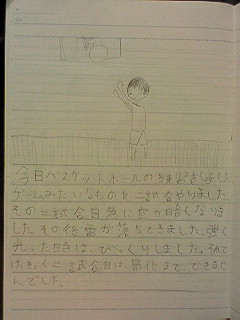 今日バスケットボールの練習をしました。
ゲームみたいなものを二試合やりました。
その二試合目急に空が暗くなりま
した。その後雷が落ちてきました。強く
光った時は、びっくりしました。それで
けっきょく二試合目は、最後まで、できませ
んでした。